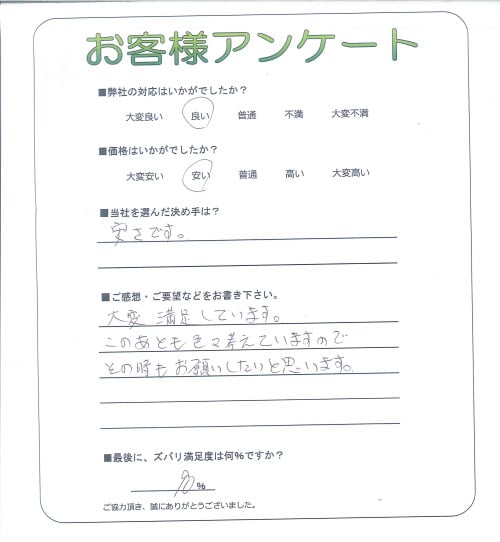 お客様アンケート
■弊社の対応はいかがでしたか？
大変良い 良い 普通 不満 大変不満
■価格はいかがでしたか？
大変安い 安い 普通 高い 大変高い
■当社を選んだ決め手は？
安さです。
■ご感想・ご要望などをお書き下さい。
大変満足しています。
このあとも色々考えていますので
その時もお願いしたいと思います。
■最後に、ズバリ満足度は何%ですか？
%
ご協力頂き、誠にありがとうございました。